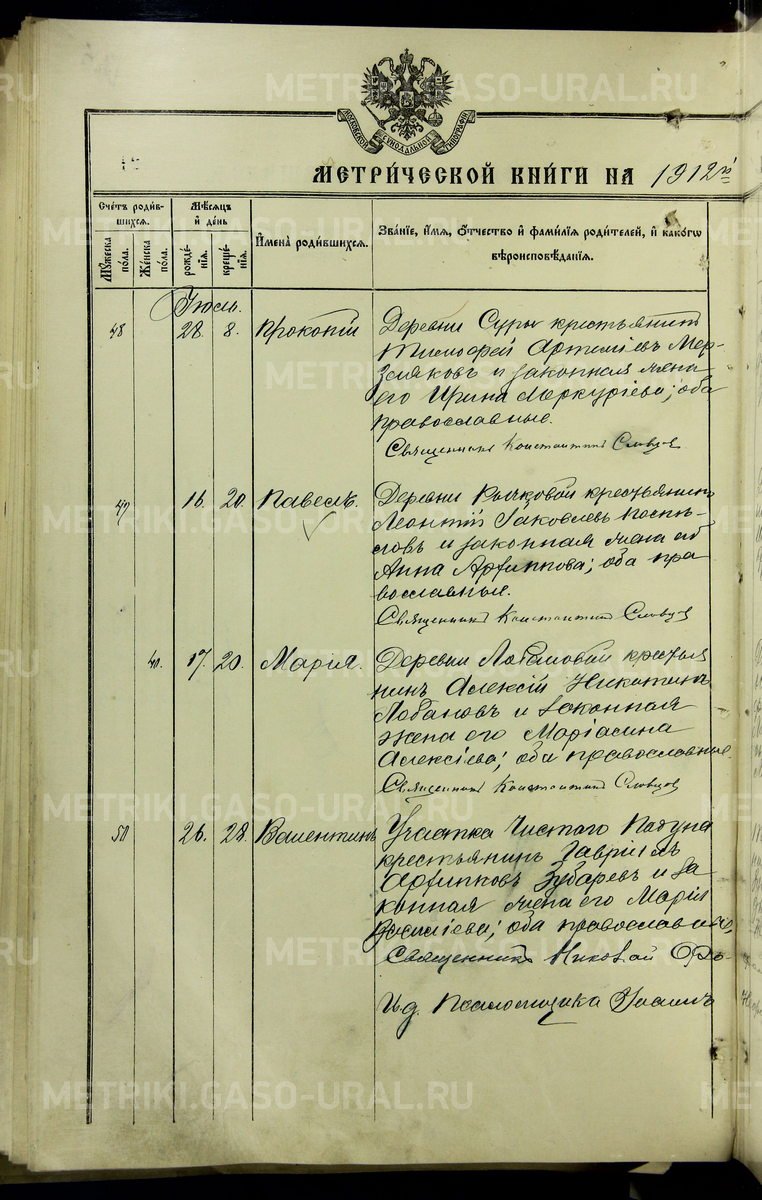 МЕТРИ́ЧЕСКОЙ КНИ́ГИ НА 1912 й
Счетъ роди́в-
шихся.
Му́жеска
по́ла.
Же́нска
по́ла.
Мѣ́сяцъ
и҆ де́нь
рожде́-
нїѧ.
креще́-
нїѧ.
И҆мена̀ роди́вшихся.
Зва́нїе, и҆́мѧ, ѻ҆́тчество и҆ фами́лїѧ роди́телей, и҆ како́гѡ
вѣроисповѣ́данїѧ.
Іюль.
48 28. 8. Прокопій
Деревни Суры крестьянинъ
Тимофей Артеміевъ Мер-
зляковъ и законная жена
его Ирина Меркуріева; оба
православные.
Священникъ Константинъ Словцов
49 16. 20. Павелъ.
Деревни Рычковой крестьянинъ
Леонтій Іаковлевъ Поспѣ-
ловъ и законная жена его
Анна Архиппова; оба пра
вославные.
Священникъ Константин Словцов
40. 17. 20. Марія.
Деревни Лобановой крестья
нинъ Алексій Никитинъ
Лобановъ и законная
жена его Маріамна
Алексіева; оба православные.
Священник Константин Словцов
50 26. 28. Валентинъ
Участка Чистаго Падуна
крестьянинъ Гавріилъ
Архипповъ Зубаревъ и за
конная жена его Марія
Василіева; оба православные,
Священникъ Николай
И.д. Псаломщика
METRIKI.GASO-URAL.RU